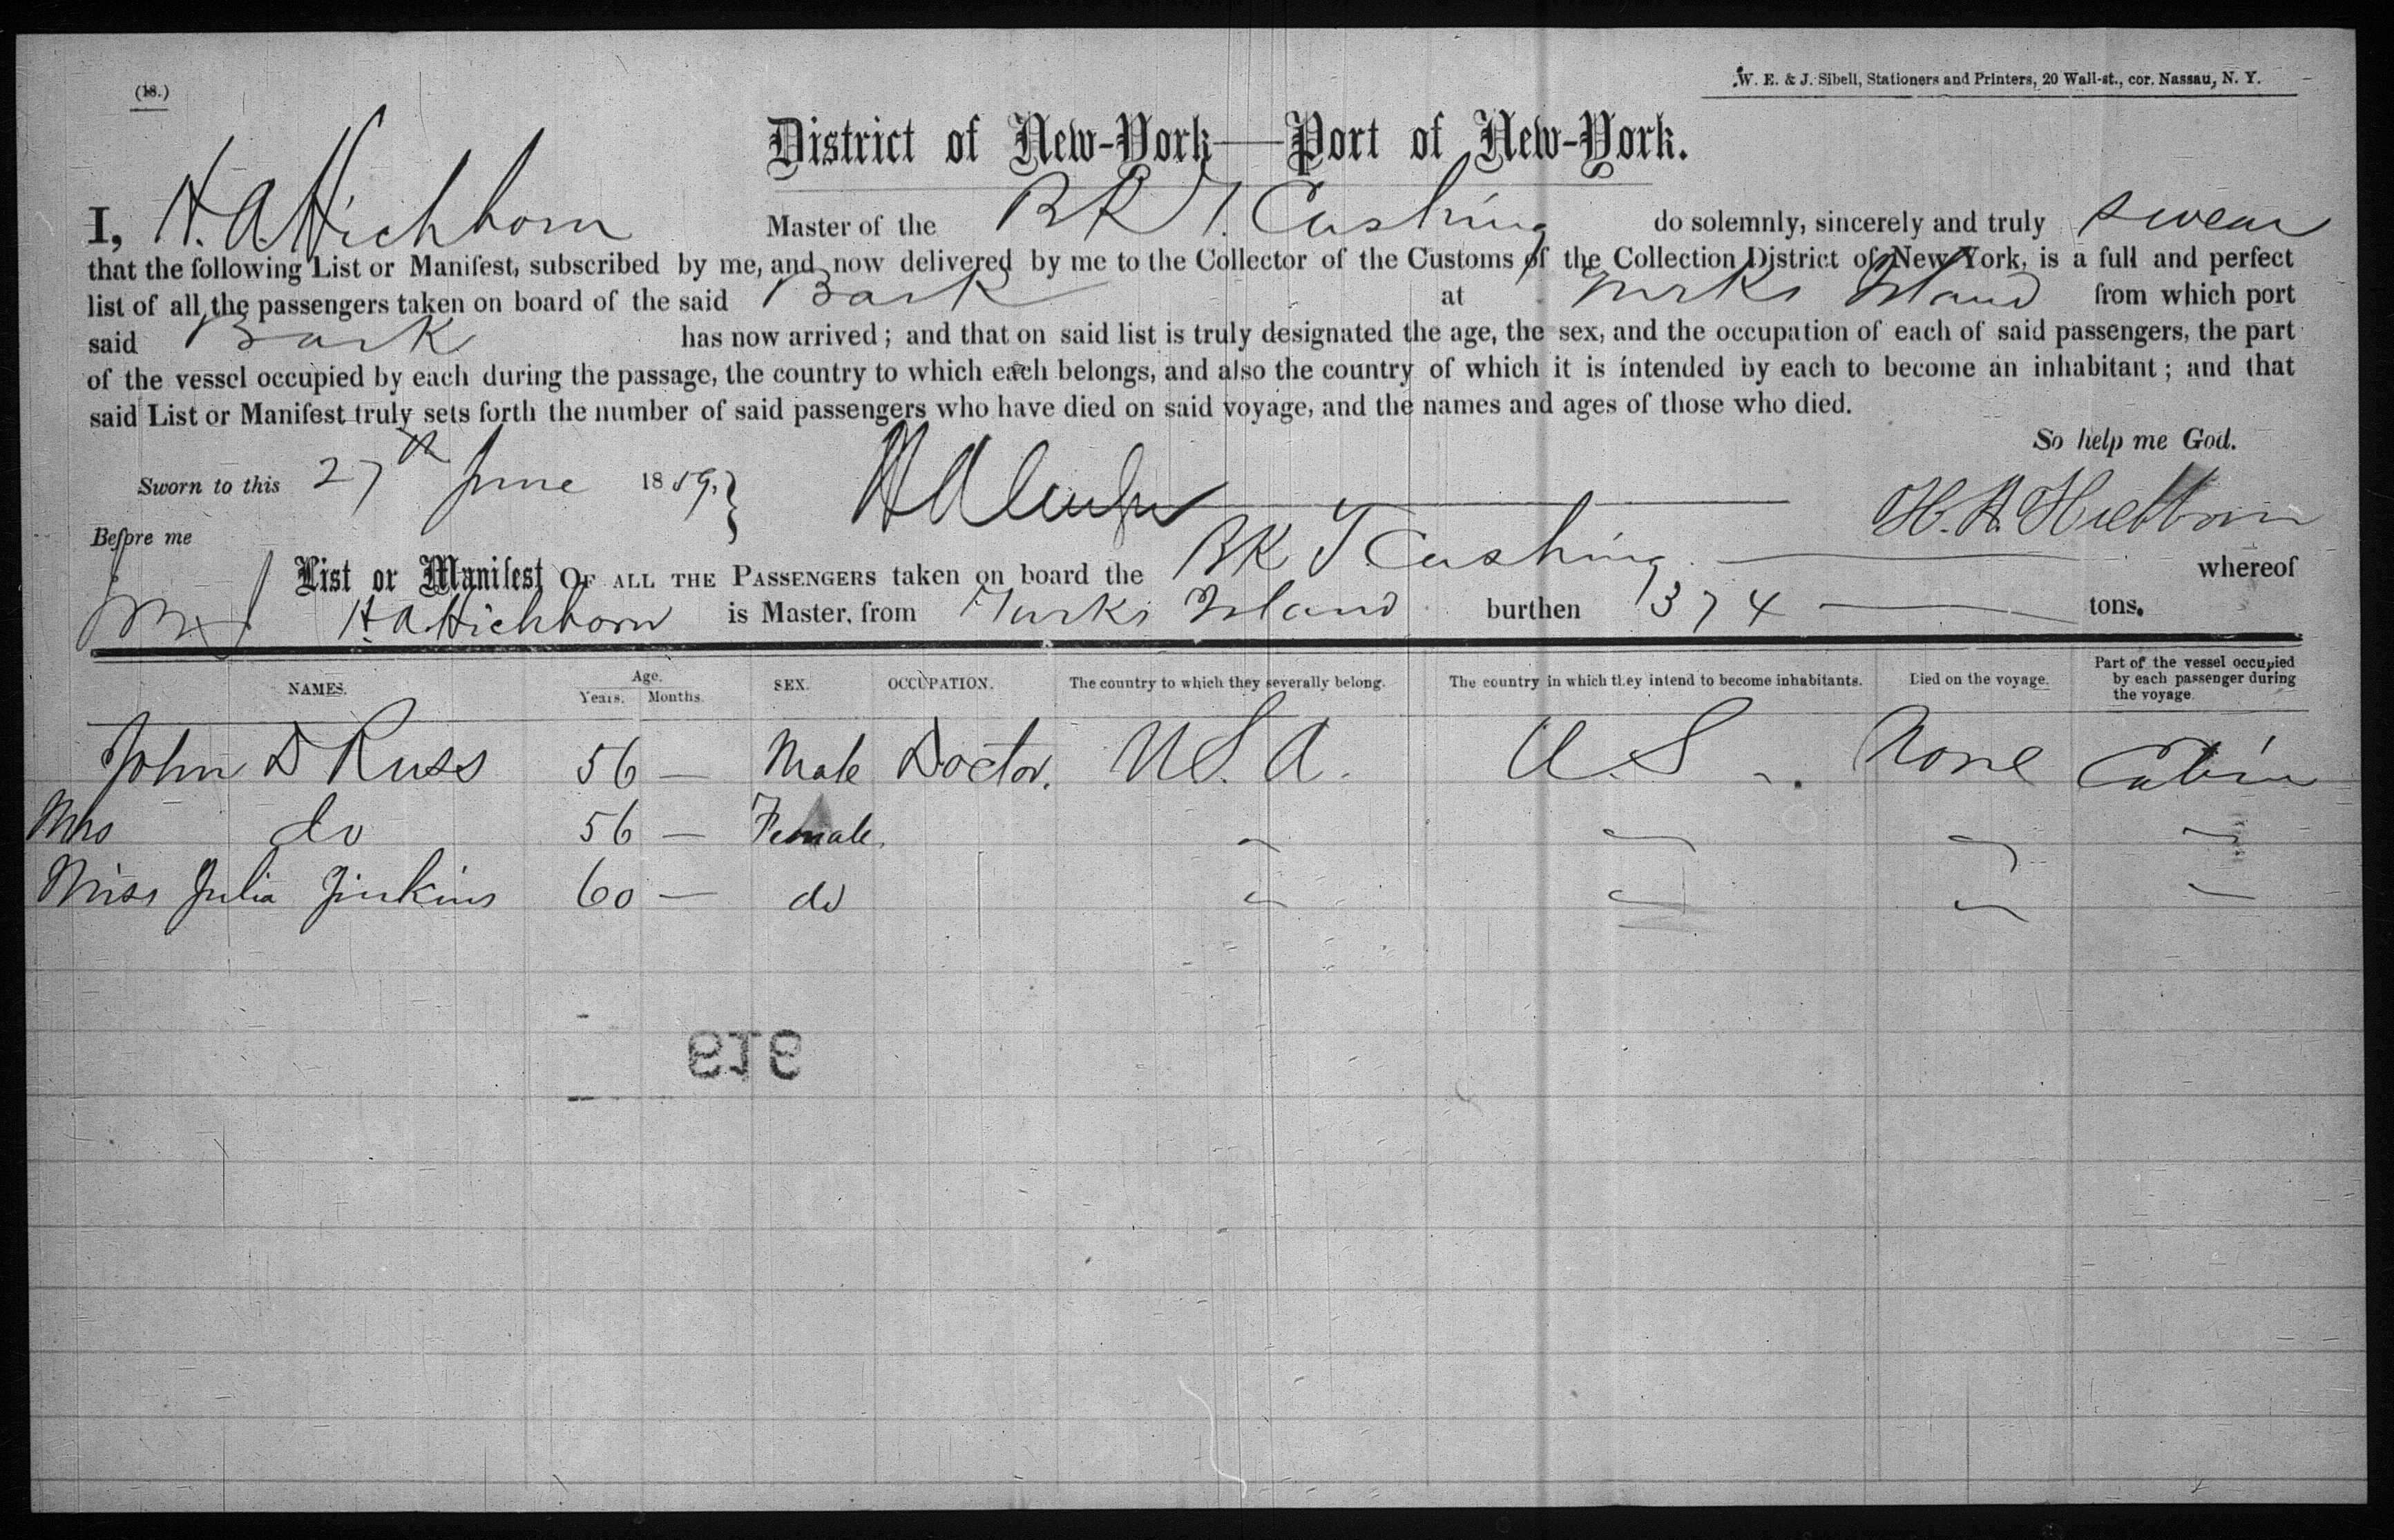 (18.)
W. E. & J. Sibell, Stationers and Printers, 20 Wall-st., cor. Nassau, N. Y.
District of New-York—Port of New-York.
I, H. A. Hichborn Master of the BK T. Cushing do solemnly, sincerely and truly swear
that the following List or Manifest, subscribed by me, and now delivered by me to the Collector of the Customs of the Collection District of New York, is a full and perfect
list of all the passengers taken on board of the said Bark at Turks Island from which port
said Bark has now arrived; and that on said list is truly designated the age, the sex, and the occupation of each of said passengers, the part
of the vessel occupied by each during the passage, the country to which each belongs, and also the country of which it is intended by each to become an inhabitant; and that
said List or Manifest truly sets forth the number of said passengers who have died on said voyage, and the names and ages of those who died.
So help me God.
Sworn to this 27th June 1859.
H. A. Hichborn
Before me
List or Manifest OF ALL THE PASSENGERS taken on board the BK T Cushing whereof
H. A. Hichborn is Master, from Turks Island burthen 374 tons.
NAMES. Age. Years. Months. SEX. OCCUPATION. The country to which they severally belong. The country in which they intend to become inhabitants. Died on the voyage. Part of the vessel occupied by each passenger during the voyage.
John D Russ 56 — Male Doctor. U.S.A. U.S. None Cabin
Mrs do 56 — Female. " " " "
Miss Julia Jinkins 60 — do " " " "